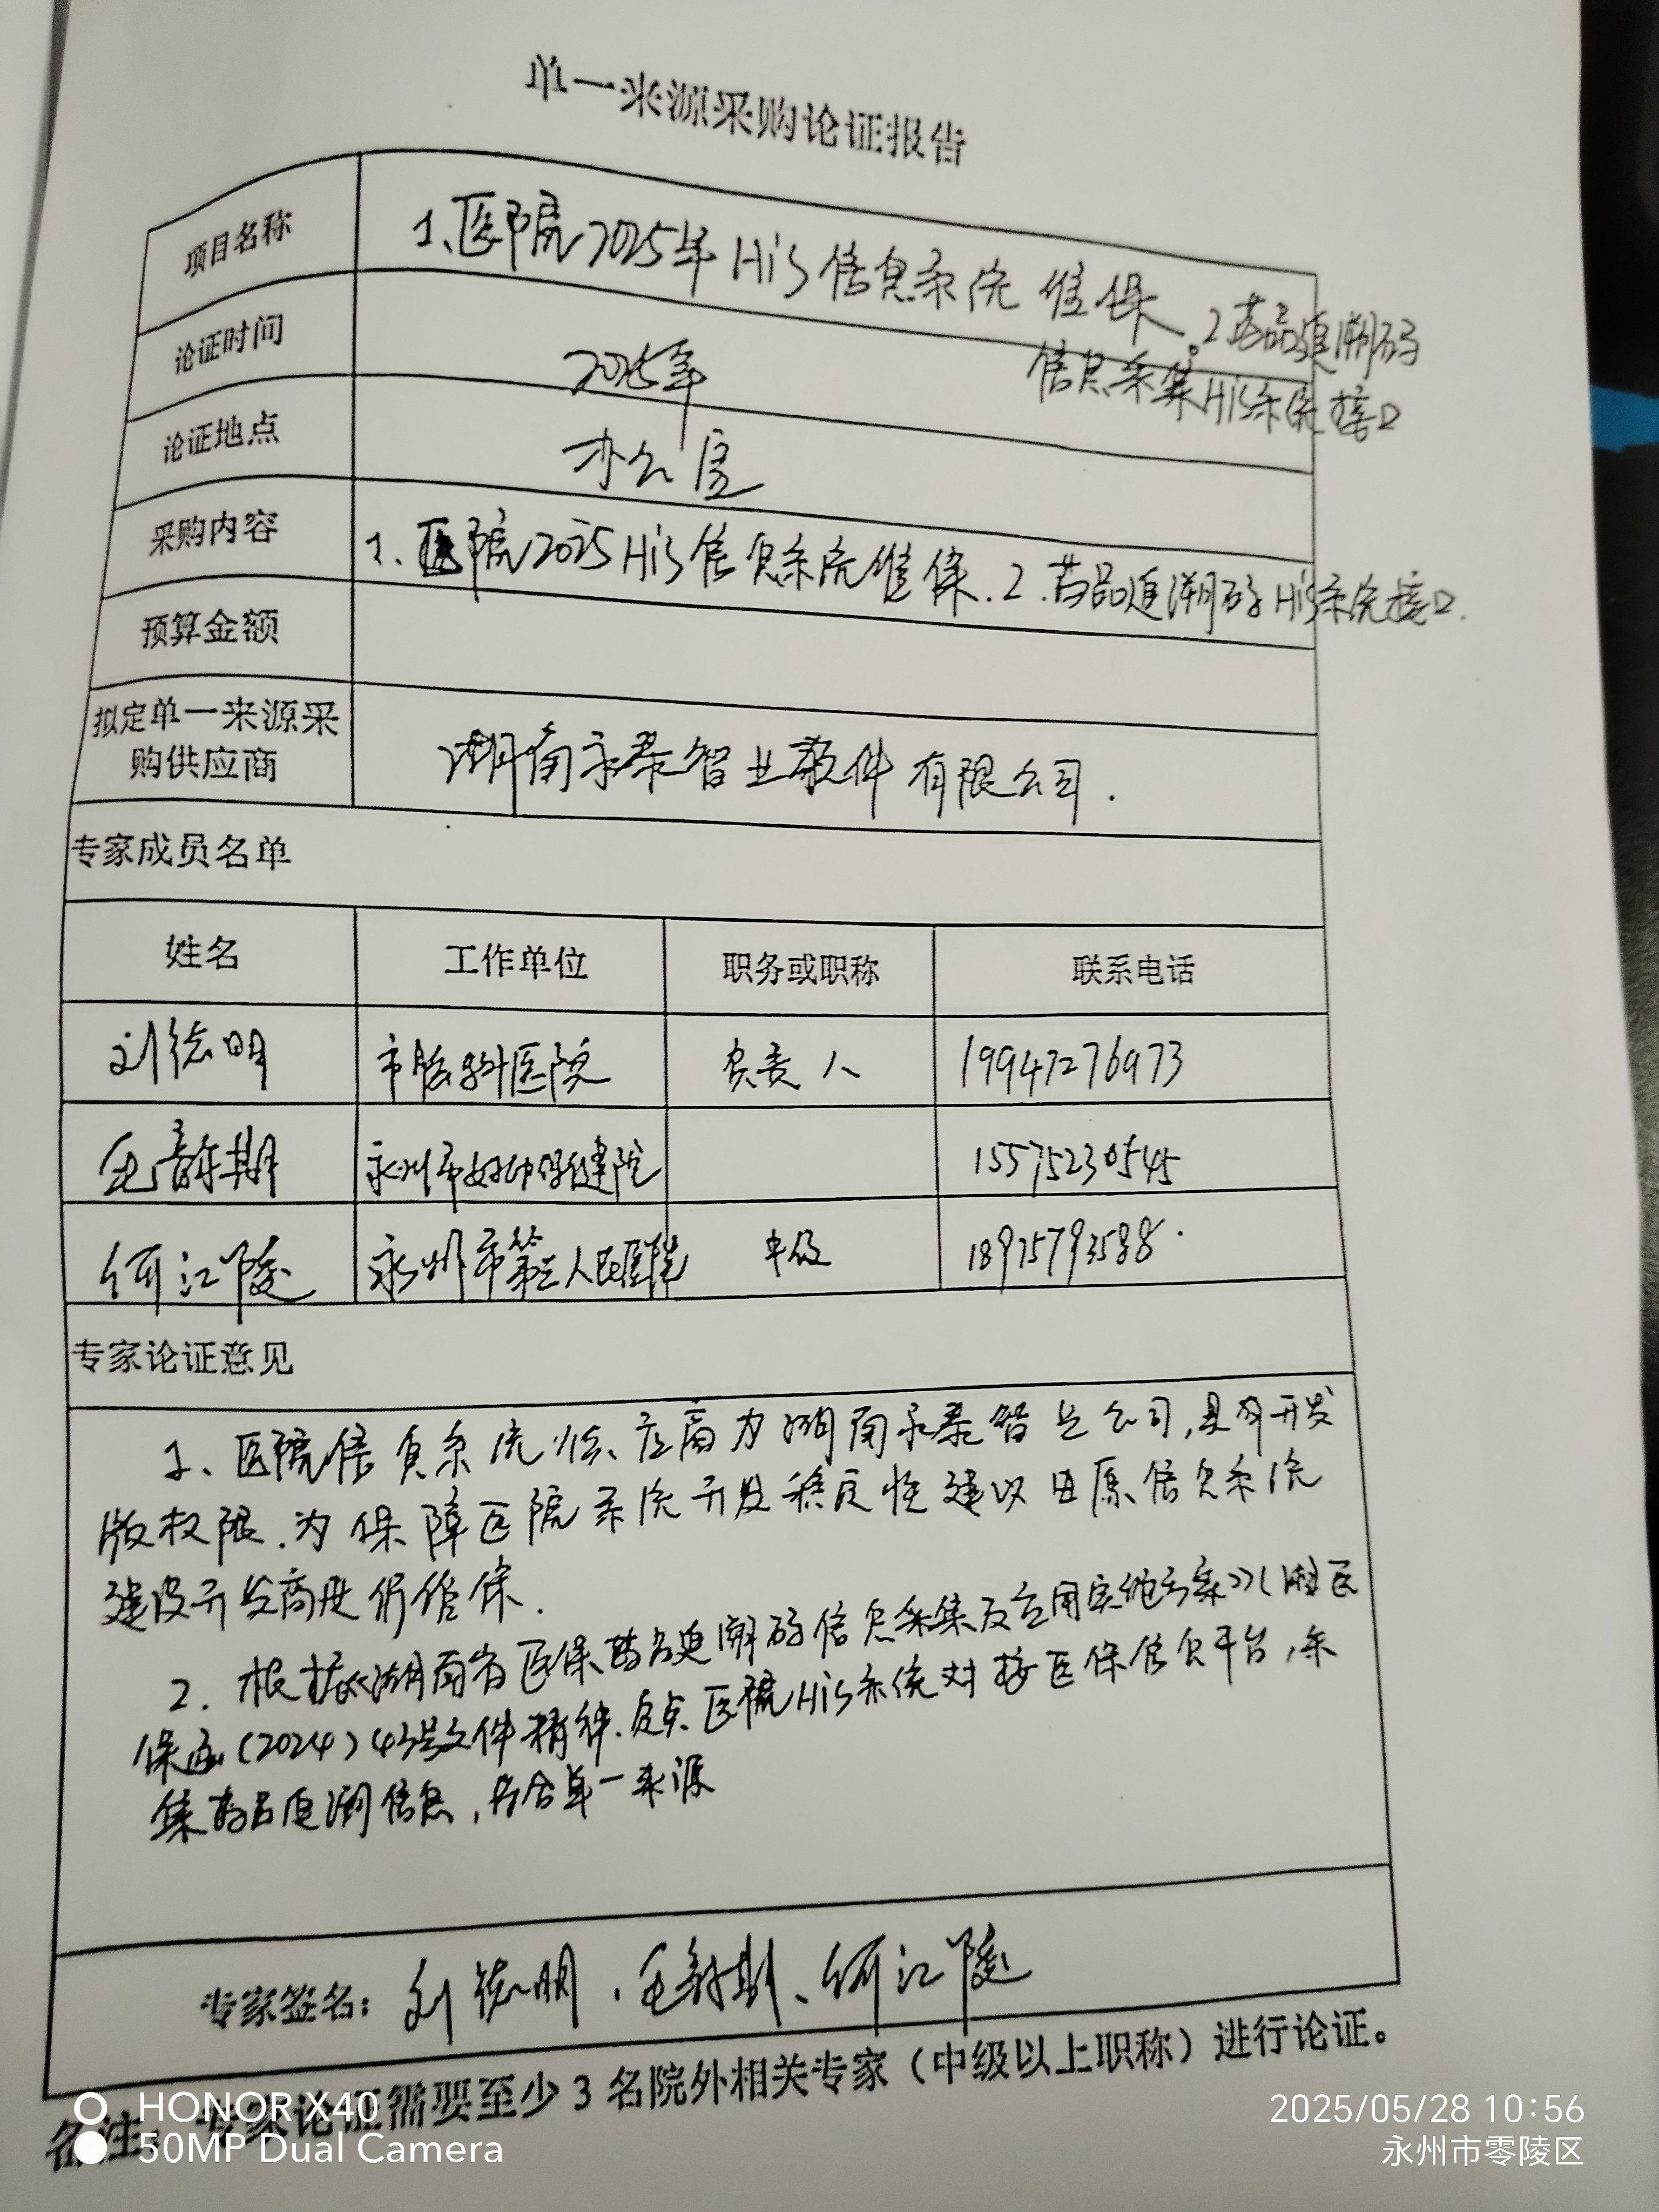 单一来源采购论证报告
项目名称 1、医院2025年His信息系统维保。2药品追溯码
信息采集His系统接口
论证时间 2025年
论证地点 办公房
采购内容 1、医院2025His信息系统维保.2.药品追溯码His系统接口.
预算金额
拟定单一来源采
购供应商 湖南永泰智业软件有限公司.
专家成员名单
姓名 工作单位 职务或职称 联系电话
刘德明 市脑科医院 负责人 19947276973
期 永州市妇幼保健院 15575230545
何江陵 永州市第三人民医院 中级 18975793588.
专家论证意见
1、医院信息系统供应商为湖南永泰智业公司,具有开发
版权限.为保障医院系统开发稳定性建议由原信息系统
建设开发商进行维保.
2.根据《湖南省医保药品追溯码信息采集及应用实施方案》(湘医
保函(2024)43号文件精神.定点医院His系统对接医保信息平台,采
集药品追溯信息,符合单一来源
专家签名: 刘德明.期、何江陵
备注:专家论证需要至少3名院外相关专家(中级以上职称)进行论证。
HONOR X40
50MP Dual Camera
2025/05/28 10:56
永州市零陵区